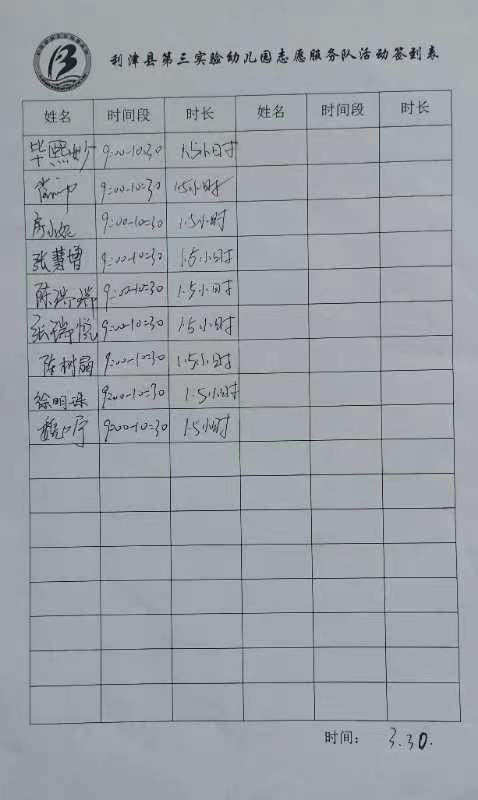 利津县第三实验幼儿园志愿服务队活动签到表
姓名 时间段 时长 姓名 时间段 时长
毕熙妙 9:00-10:30 1.5小时
9:00-10:30 1.5小时
9:00-10:30 1.5小时
张慧增 9:00-10:30 1.5小时
陈瑞瑞 9:00-10:30 1.5小时
张瑞悦 9:00-10:30 1.5小时
陈树丽 9:00-10:30 1.5小时
徐明珠 9:00-10:30 1.5小时
9:00-10:30 1.5小时
时间： 3.30.